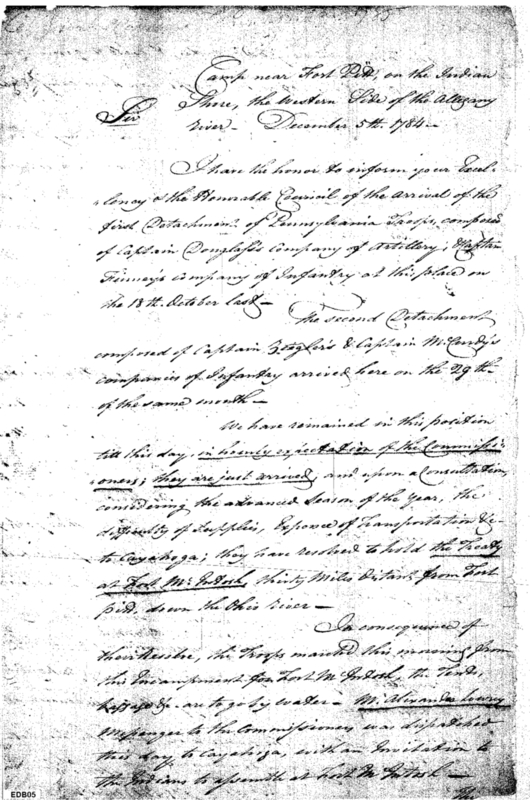 Camp near Fort Pitt, on the Indian
Sir Shore, the Western Side of the Allegany
River - December 5th. 1784 -
I have the honor to inform your Excel-
lency & the Honorable Council of the arrival of the
first Detachment of Pennsylvania Troops, composed
of Captain Douglass's company of Artillery, & Captain
Finney's company of Infantry at this place on
the 18th. October last -
The second Detachment
composed of Captain Zeigler's & Captain McCurdy's
companies of Infantry arrived here on the 29th
of the same month -
We have remained in this position
till this day, in expectation of the Commissi-
oners; they are just arrived, and upon a Consultation,
considering the advanced Season of the year, the
difficulty of Supplies, Expence of Transportation &c
to Cayahoga; they have resolved to hold the Treaty
at Fort McIntosh, thirty Miles distant from Fort
pitt down the Ohio River -
In consequence of
their Resolve, the Troops marched this morning from
this Encampment for Fort McIntosh, the Tents,
Baggage &c. are to go by water - Mr. Alexander Lowry
Messenger to the Commissioners was dispatched
this day to Cayahoga, with an Invitation to
the Indians to assemble at Fort McIntosh -
The
EDB05